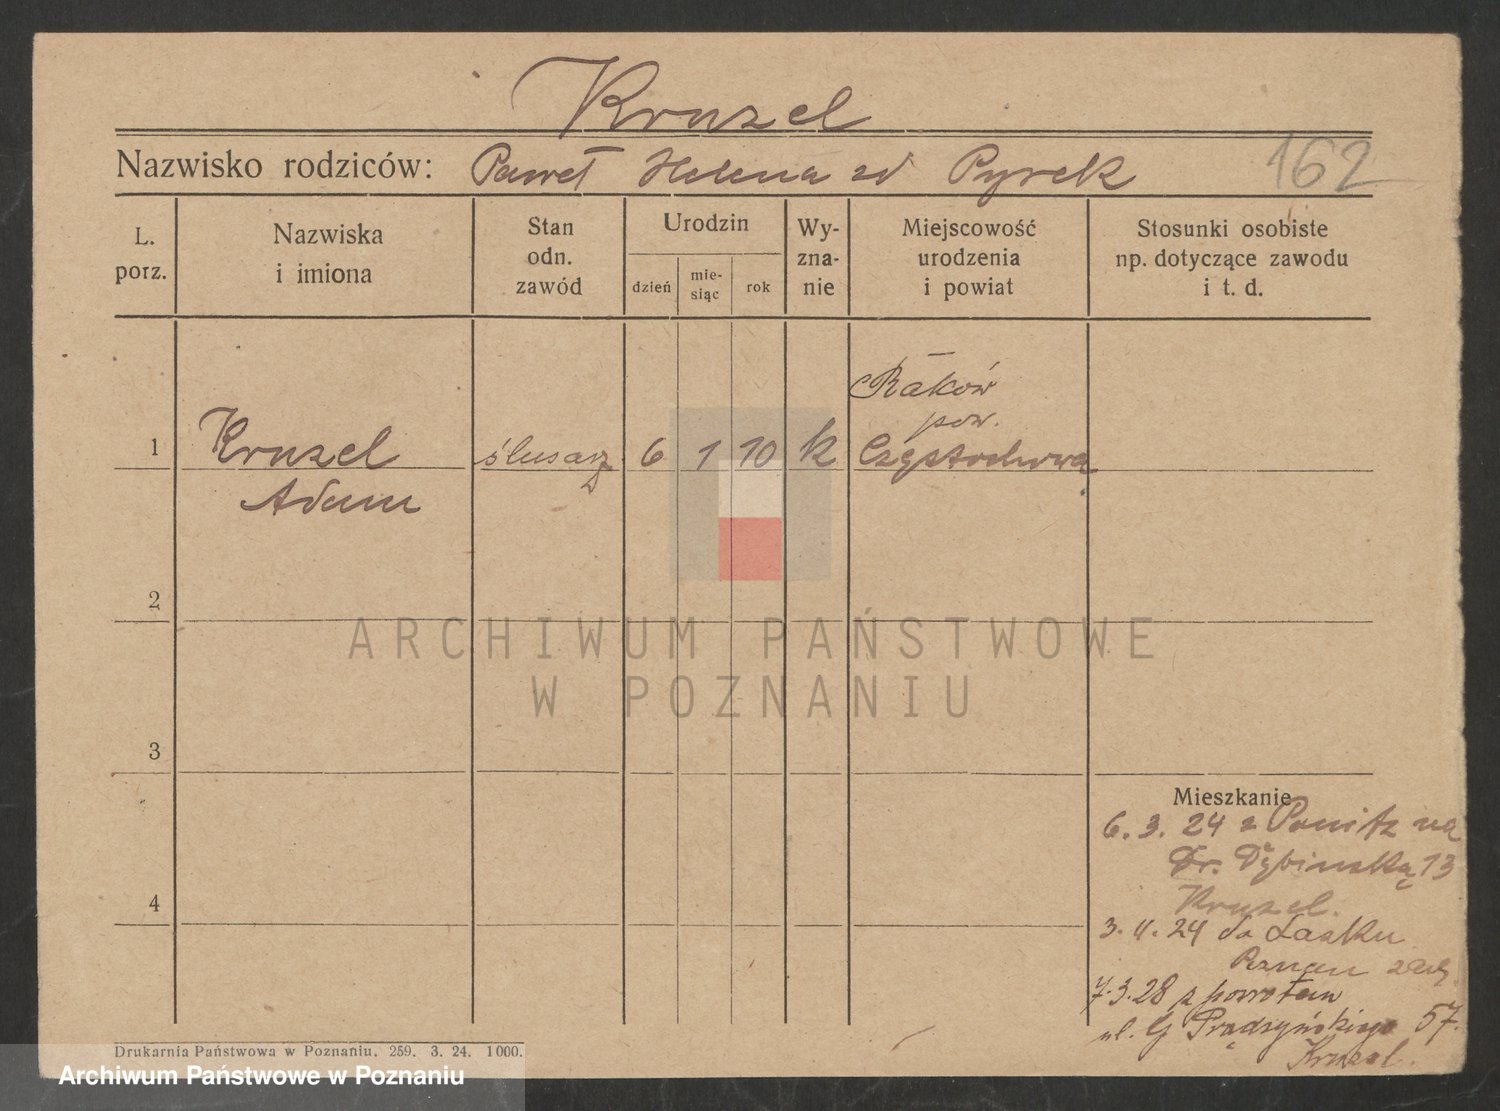 Kruzel
Nazwisko rodziców: Paweł Helena zd Pyrek
162
L. porz.
Nazwiska i imiona
Stan odn. zawód
Urodzin
dzień
mie-
siąc
rok
Wy-
zna-
nie
Miejscowość urodzenia i powiat
Stosunki osobiste np. dotyczące zawodu i t. d.
Raków
pow.
1 Kruzel ślusarz 6 1 10 k Częstochowa
Adam
2
ARCHIWUM PAŃSTWOWE
W POZNANIU
3
Mieszkanie
6. 3. 24 z na
Dr. Dębińską 13
4
Kruzel.
3. 4. 24 do Lasku
Poznań
7.3.28 z powrotem
ul. G Prądzyńskiego 57.
Kruzel.
Drukarnia Państwowa w Poznaniu. 259. 3. 24. 1000.
Archiwum Państwowe w Poznaniu